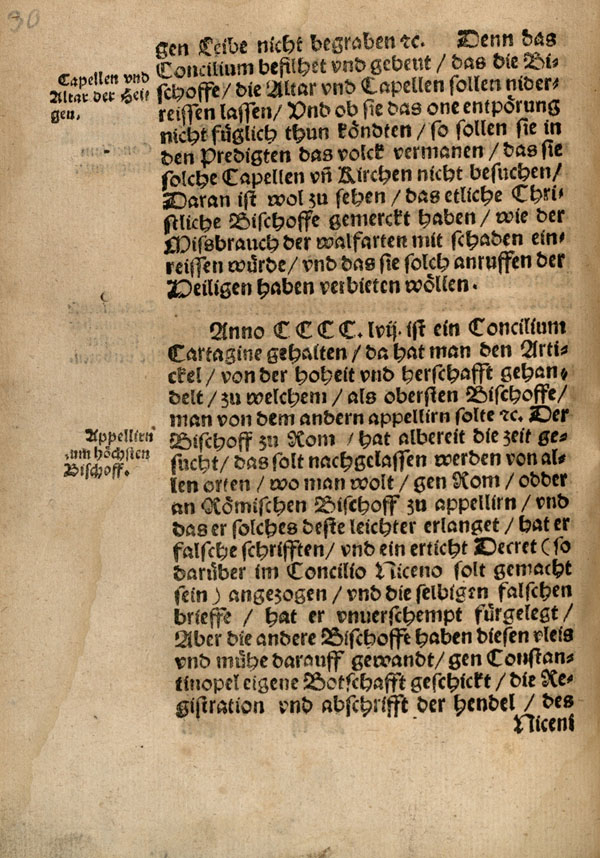 30
gen Leibe nicht begraben ꝛc. Denn das
Capellen vnd
Altar der Heili
gen.
Concilium befilhet vnd gebeut / das die Bi-
schoffe / die Altar vnd Capellen sollen nider-
reissen lassen / Vnd ob sie das one entpörung
nicht füglich thun köndten / so sollen sie in
den Predigten das volck vermanen / das sie
solche Capellen vn̄ Kirchen nicht besuchen /
Daran ist wol zu sehen / das etliche Chri-
stliche Bischoffe gemerckt haben / wie der
Missbrauch der walfarten mit schaden ein-
reissen würde / vnd das sie solch anruffen der
Heiligen haben verbieten wöllen.
Anno CCCC. lvij. ist ein Concilium
Cartagine gehalten / da hat man den Arti-
ckel / von der hoheit vnd herschafft gehan-
delt / zu welchem / als obersten Bischoffe /
man von dem andern appellirn solte ꝛc. Der
Appellirn
zum höchsten
Bischoff.
Bischoff zu Rom / hat albereit die zeit ge-
sucht / das solt nachgelassen werden von al-
len orten / wo man wolt / gen Rom / odder
an Römischen Bischoff zu appellirn / vnd
das er solches deste leichter erlanget / hat er
falsche schrifften / vnd ein erticht Decret (so
darüber im Concilio Niceno solt gemacht
sein) angezogen / vnd die selbigen falschen
brieffe / hat er vnuerschempt fürgelegt /
Aber die andere Bischoffe haben diesen vleis
vnd mühe darauff gewandt / gen Constan-
tinopel eigene Botschafft geschickt / die Re-
gistration vnd abschrifft der hendel / des
Niceni